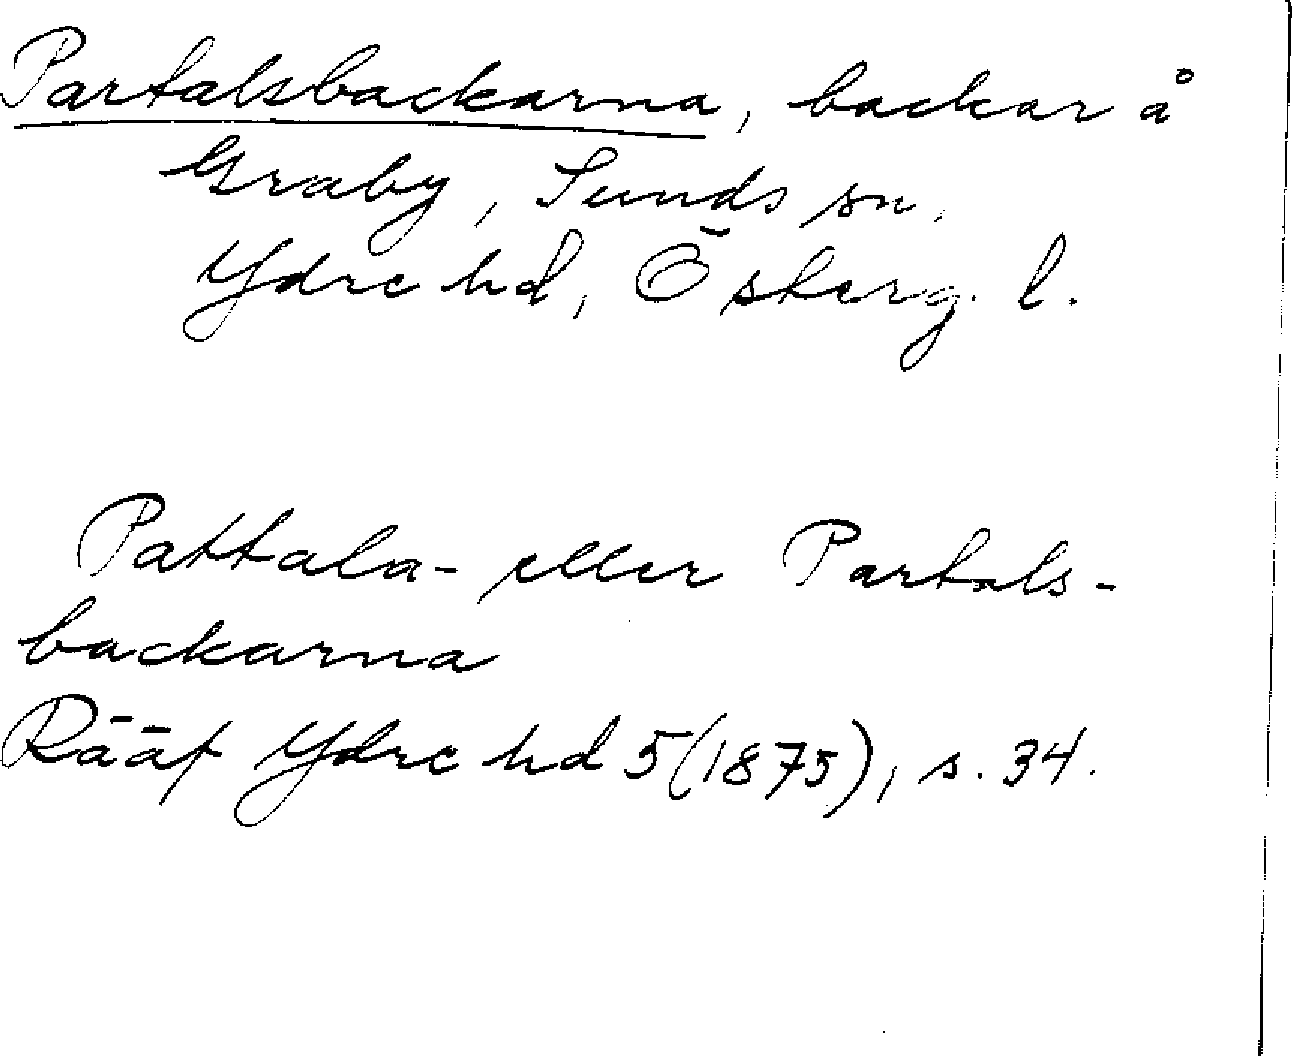 Partalsbackarna, backar å
Graby, Sunds sn,
Ydre hd, Österg. l.
Pattala- eller Partals-
backarna
Rääf Ydre hd 5 (1875), s. 34.